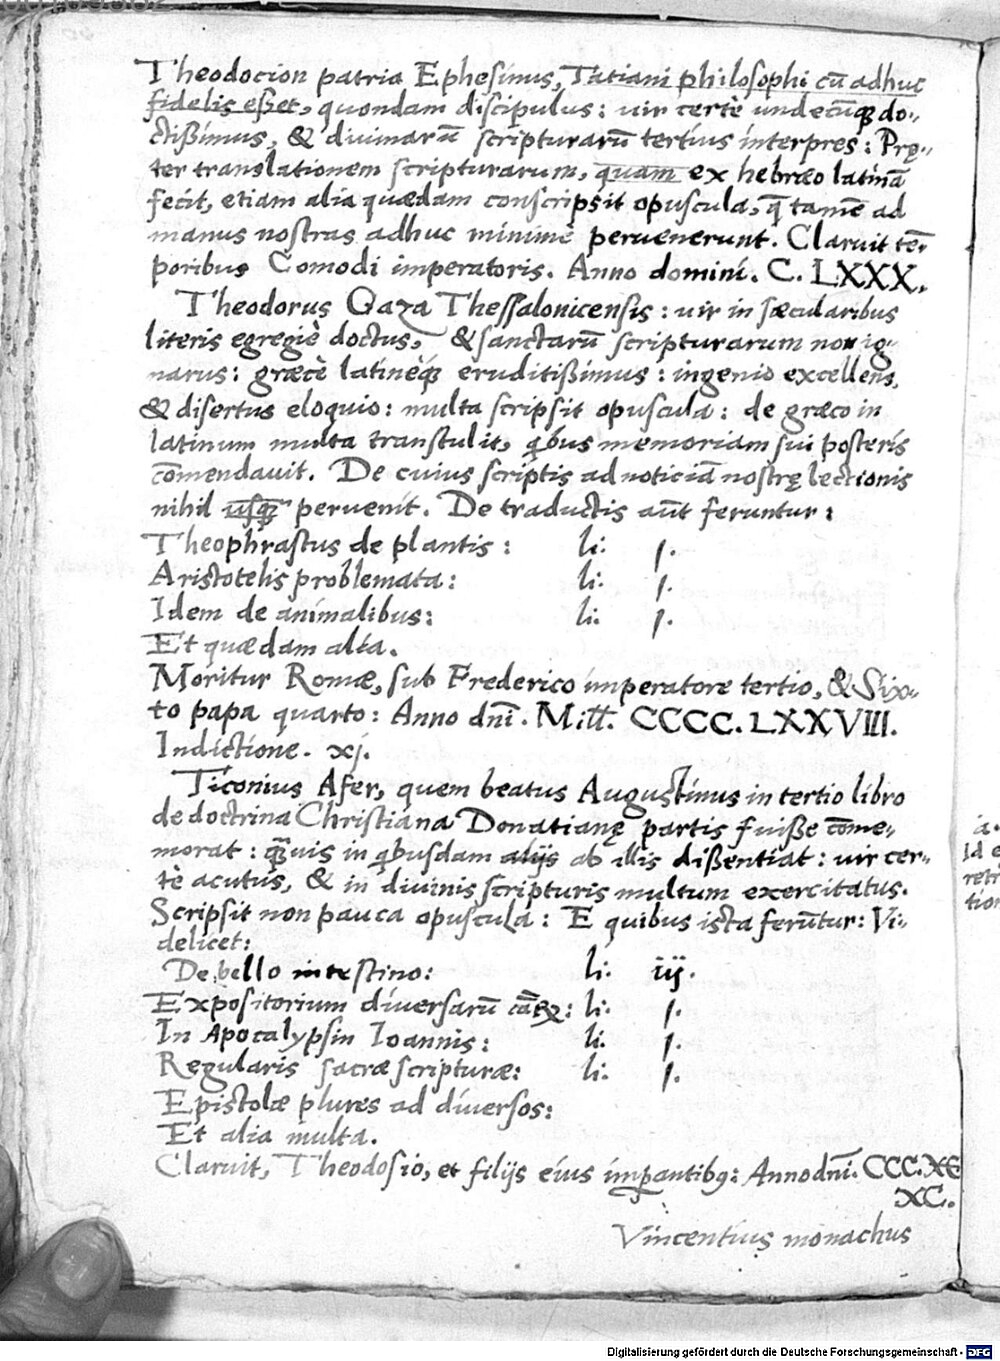 Theodocion patria Ephesinus, Tatiani philosophi cū adhuc
fidelis esset, quondam discipulus: uir certè undecūqꝫ do-
ctißimus, & diuinarū scripturarū tertius interpres: Prę-
ter translationem scripturarum, quam ex hebræo latinā
fecit, etiam alia quædam conscripsit opuscula, q̄ tamē ad
manus nostras adhuc minimè peruenerunt. Claruit tē-
poribus Comodi imperatoris. Anno domini. C. LXXX.
Theodorus Gaza Thessalonicensis: uir in sæcularibus
literis egregiè doctus, & sanctarū scripturarum non ig-
narus: græcè latinéqꝫ eruditißimus: ingenio excellens,
& disertus eloquio: multa scripsit opuscula: de græco in
latinum multa transtulit, qbus memoriam sui posteris
cōmendauit. De cuius scriptis ad noticiā nostrę lectionis
nihil usqꝫ peruenit. De traductis aūt feruntur:
Theophrastus de plantis: li: j.
Aristotelis problemata: li: j.
Idem de animalibus: li: j.
Et quædam alia.
Moritur Romæ, sub Frederico imperatore tertio, & Six-
to papa quarto: Anno dnī. Mill. CCCC. LXXVIII.
Indictione. xj.
Ticonius Afer, quem beatus Augustinus in tertio libro
de doctrina Christiana Donatianę partis fuiße cōme-
morat: quis in qbusdam alijs ab illis dißentiat: uir cer-
tè acutus, & in diuinis scripturis multum exercitatus.
Scripsit non pauca opuscula: E quibus ista ferūtur: Vi-
delicet:
De bello intestino: li: iij.
Expositorium diuersarū cāꝝ: li: j.
In Apocalypsin Ioannis: li: j.
Regularis sacræ scripturæ: li: j.
Epistolæ plures ad diuersos:
Et alia multa.
Claruit, Theodosio, et filijs eius imꝑantibꝫ: Anno dnī. CCC.
XC.
Vincentius monachus
a.
Id e
retr
tion
Digitalisierung gefördert durch die Deutsche Forschungsgemeinschaft - DFG